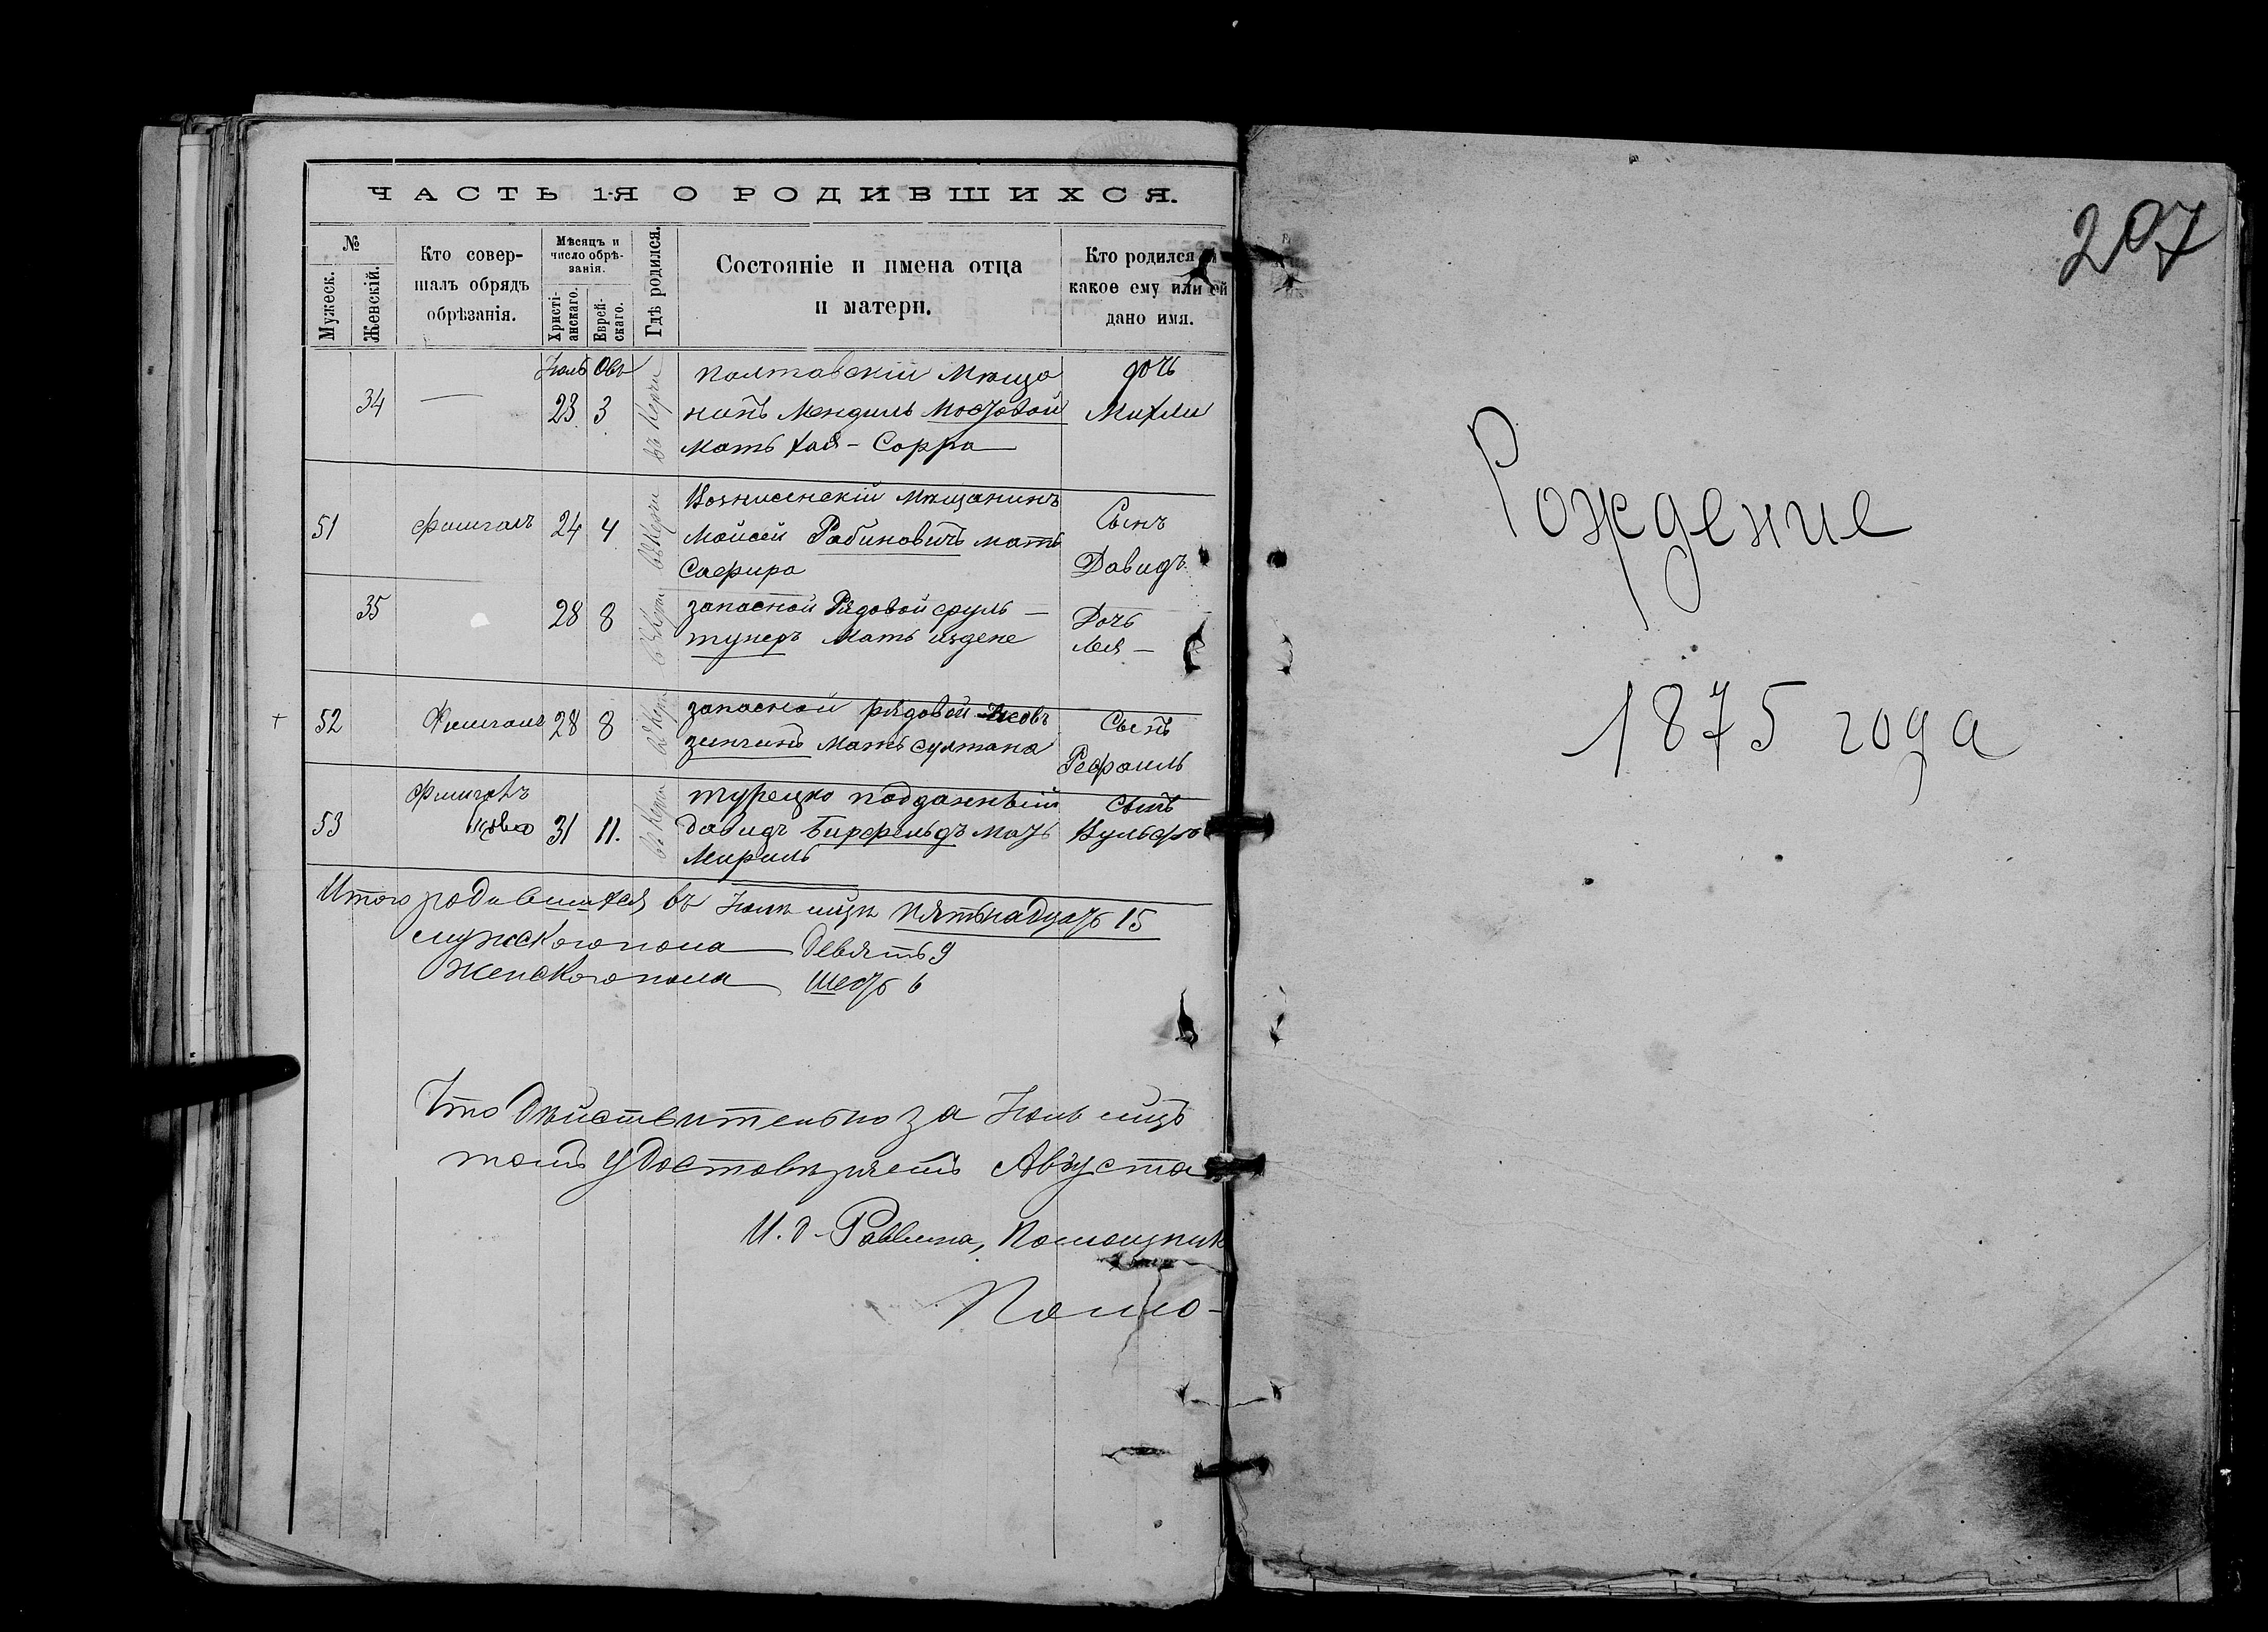 ЧАСТЬ 1-Я О РОДИВШИХСЯ.
№
Мужеск.
Женскій.
Кто совер-
шалъ обрядъ
обрѣзанія.
Мѣсяцъ и
число обрѣ-
занія.
Христі-
анскаго.
Еврей-
скаго.
Гдѣ родился.
Состояніе и имена отца
и матери.
Кто родился и
какое ему или ей
дано имя.
Іюль Овъ
34 — 23 3 въ Керчи
полтавскій Мѣща
нинъ Мендиль Мостовой
мать Хая - Сорра
дочь
Михли
51 Фишгалъ 24 4 въ Керчи
Вознисенскій Мѣщанинъ
Мойсей Рабиновичъ мать
Сафира
Сынъ
Давидъ
35 28 8 въ Керчи
запасной Рядовой сруль —
тунеръ Мать
Дочь
Лея —
52 Фишгалъ 28 8 въ Керчи
запасной рядовой
зинчинъ Мать султана
Сынъ
Рефаиль
53 Фишгалъ 31 11. въ Керчи
турецко подданный
Давидъ Бирфельдъ мать
Мириль
сынъ
Вульфъ
Итого родившихся въ Іюлѣ мцѣ пятьнадцать 15
мужского пола — девять 9
Женского пола — шесть 6
Что дѣйствительно за Іюль мцъ
томъ удостовѣряетъ Августа
И. д. Раввина, Помощник
207
Рождение
1875 года